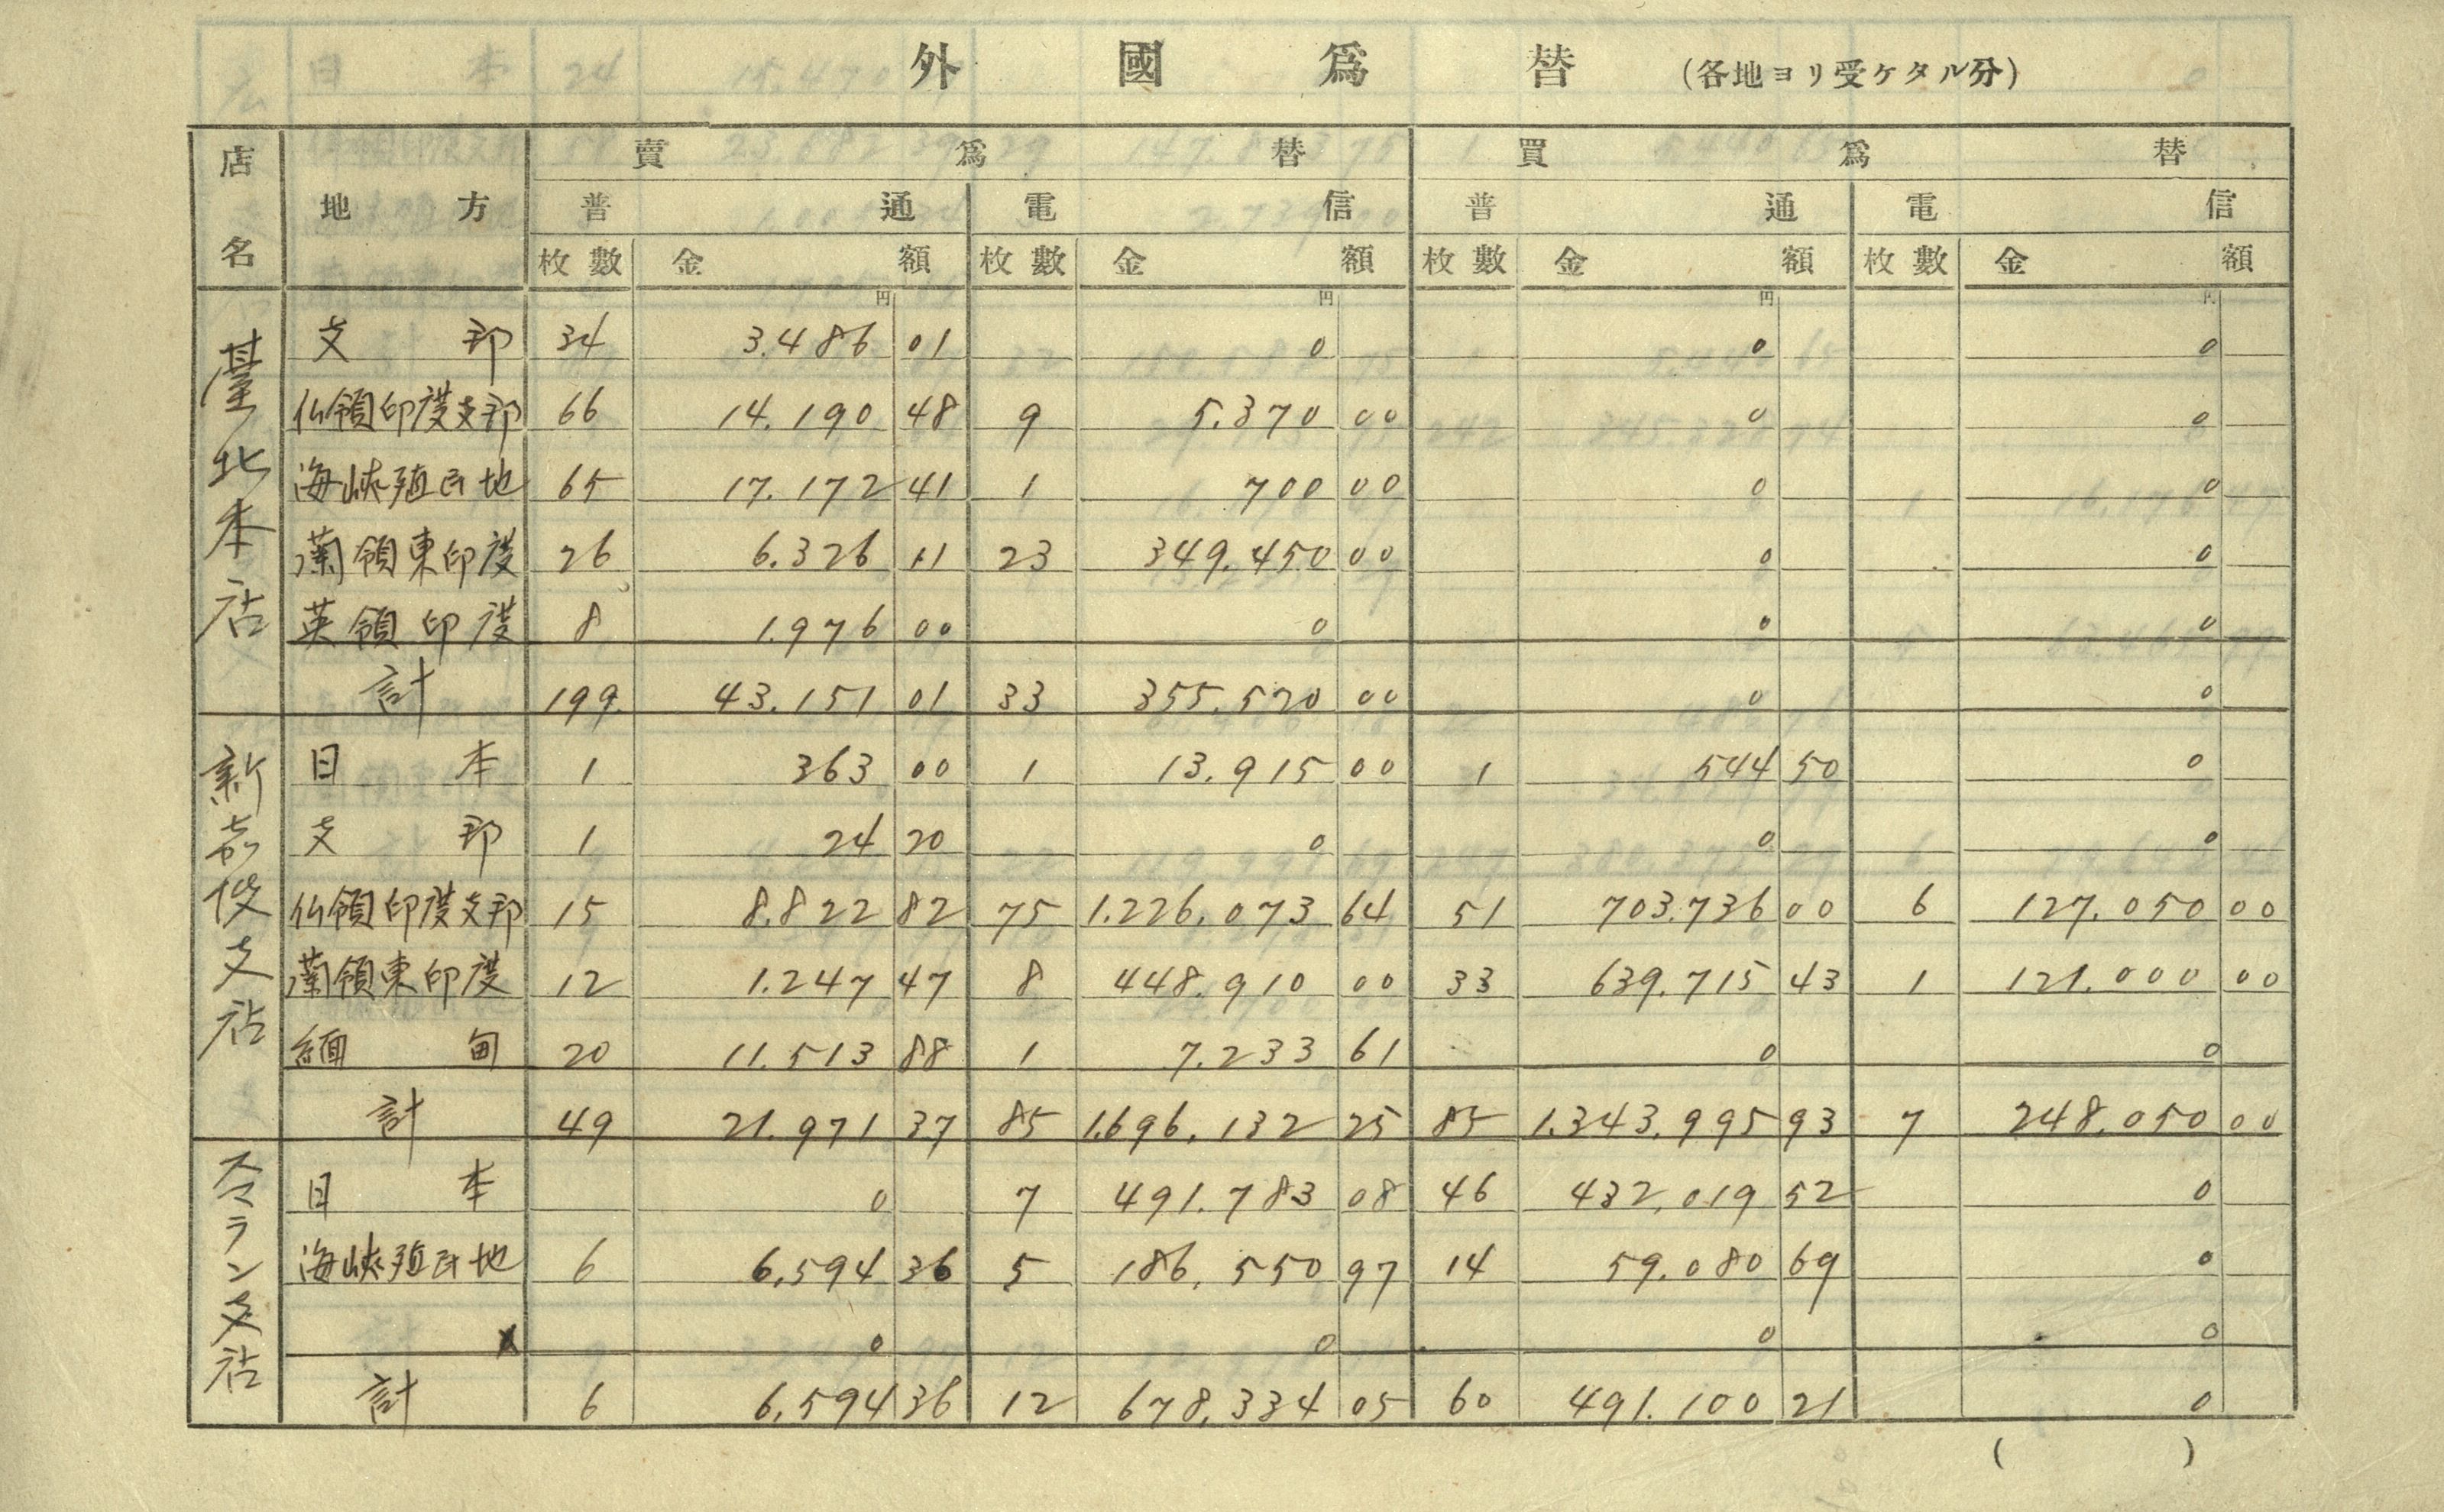 外國爲替 (各地ヨリ受ケタル分)
店名 地方 賣爲替 買爲替
普通 電信 普通 電信
枚數 金額 枚數 金額 枚數 金額 枚數 金額
円 円 円 円
臺北本店
支那 34 3.486 01 0 0 0
仏領印度支那 66 14.190 48 9 5.370 00 0 0
海峽殖民地 65 17.172 41 1 700 00 0 0
蘭領東印度 26 6.326 11 23 349.450 00 0 0
英領印度 8 1.976 00 0 0 0
計 199 43.151 01 33 355.520 00 0 0
新嘉坡支店
日本 1 363 00 1 13.915 00 1 544 50 0
支那 1 24 20 0 0 0
仏領印度支那 15 8.822 82 75 1.226.073 64 51 703.736 00 6 127.050 00
蘭領東印度 12 1.247 47 8 448.910 00 33 639.715 43 1 121.000 00
緬甸 20 11.513 88 1 7.233 61 0 0
計 49 21.971 37 85 1.696.132 25 85 1.343.995 93 7 248.050 00
スマラン支店
日本 0 7 491.783 08 46 432.019 52 0
海峽殖民地 6 6.594 36 5 186.550 97 14 59.080 69 0
0 0 0 0
計 6 6.594 36 12 678.334 05 60 491.100 21 0
( )